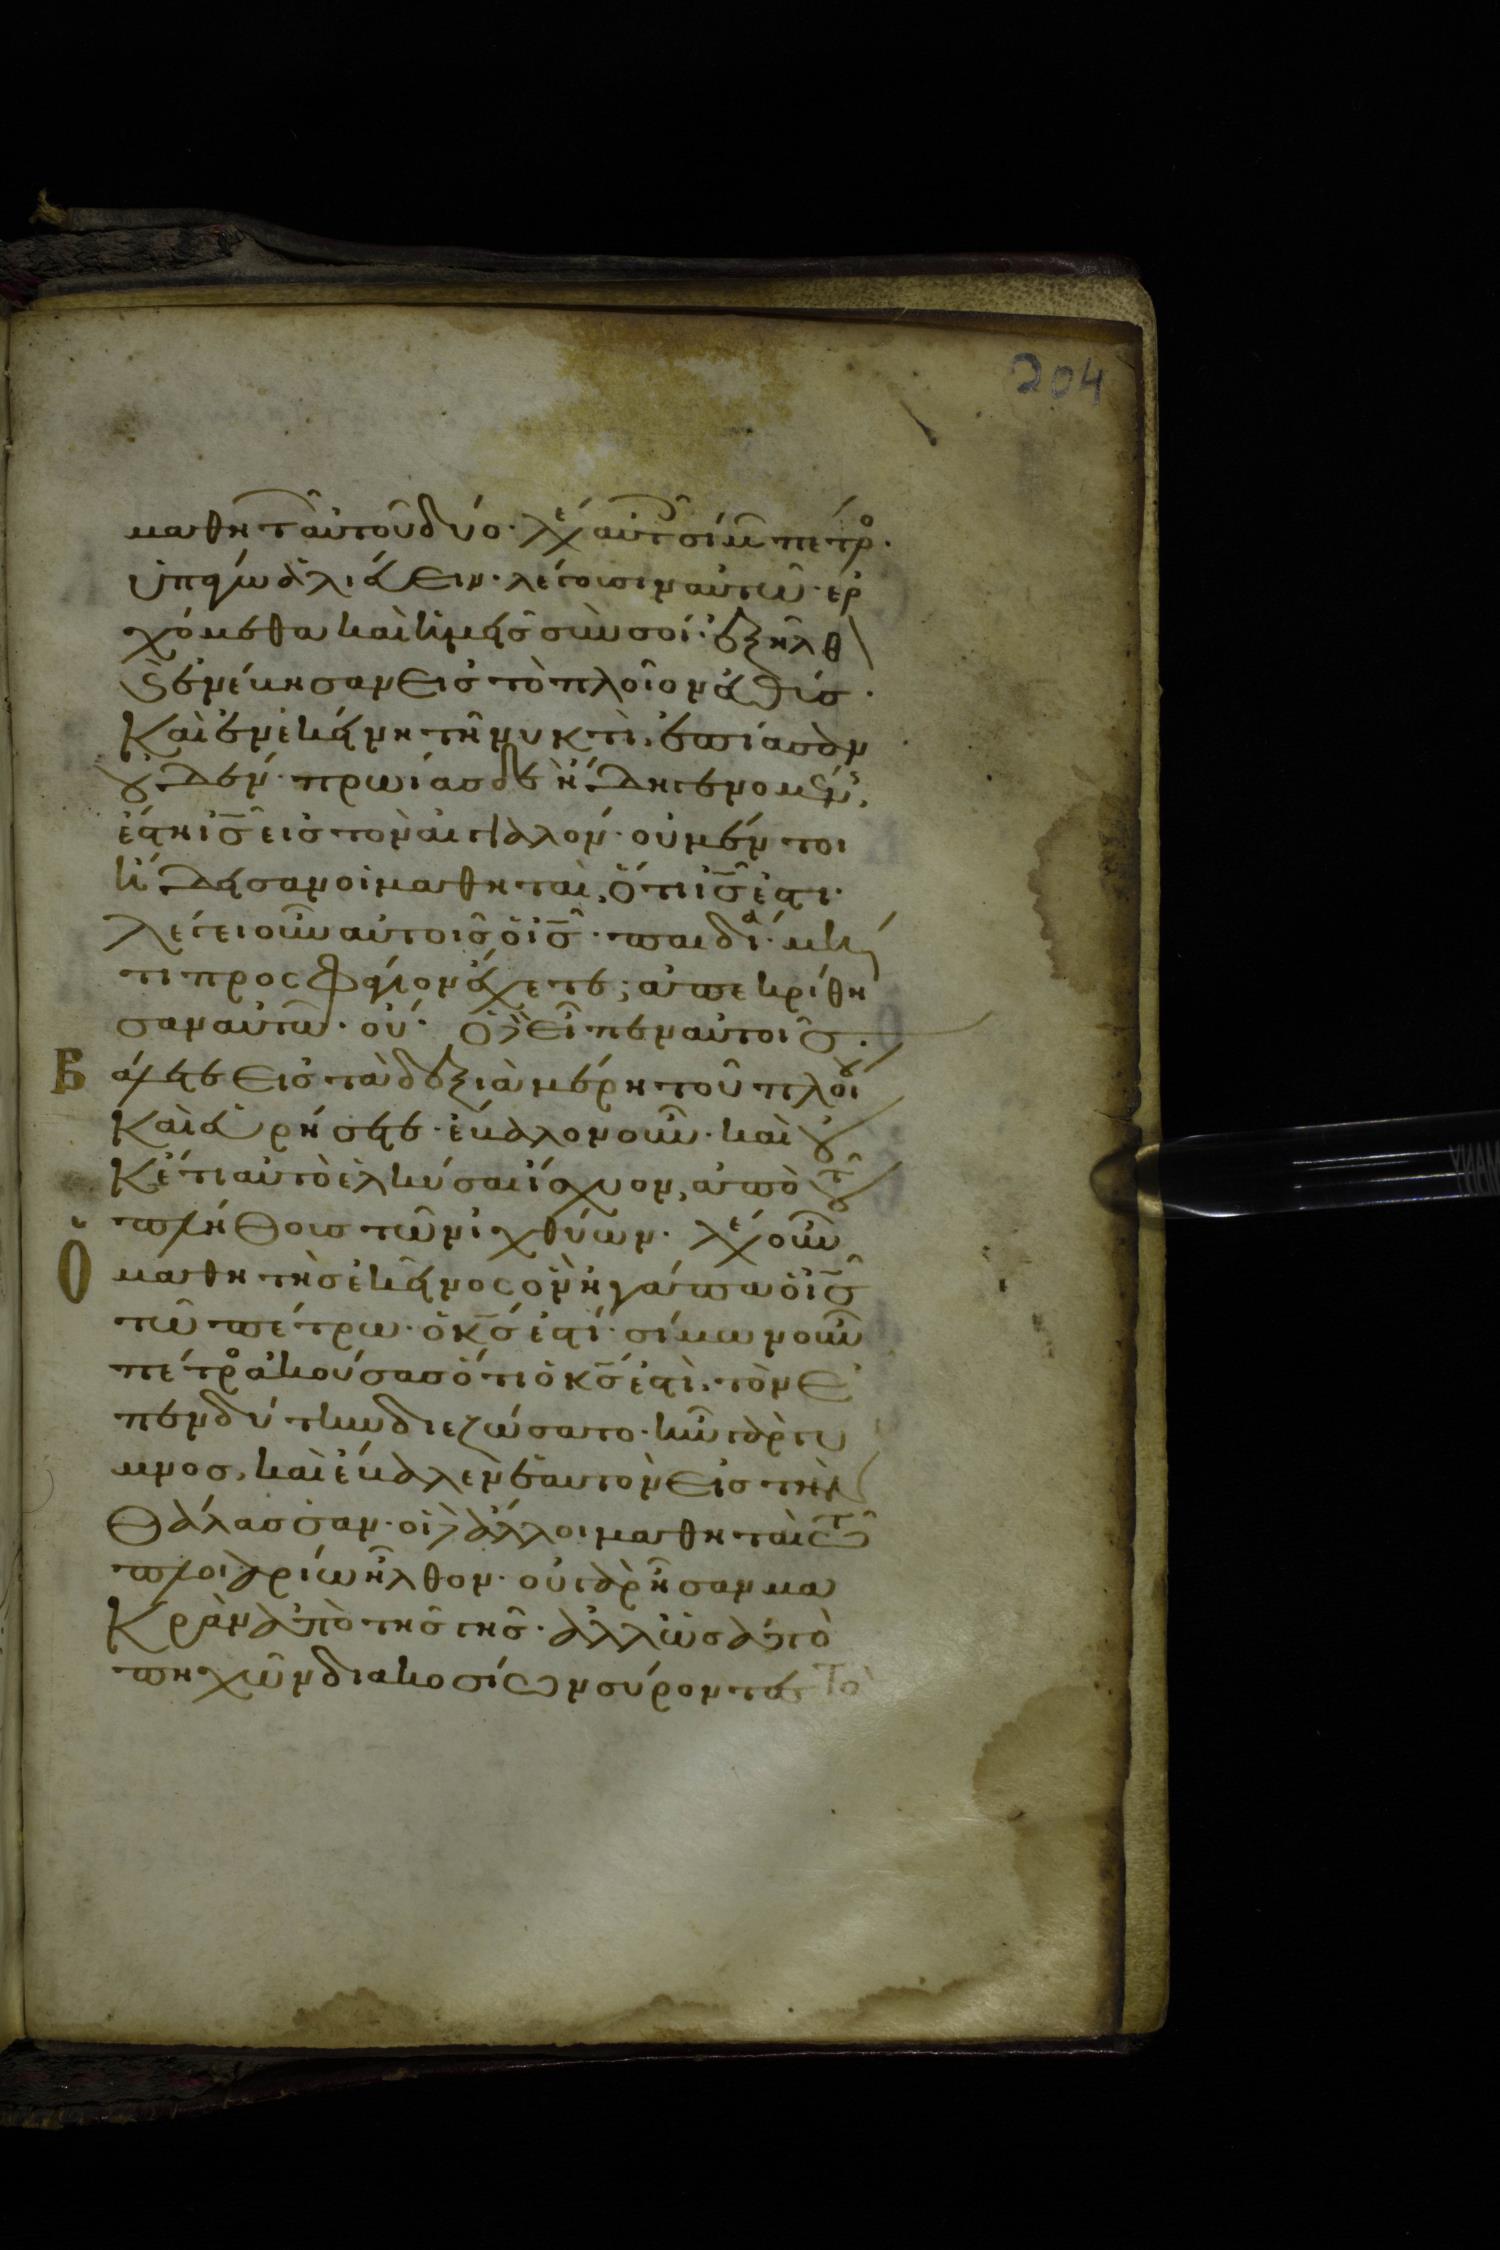 204
μαθητῶν αὐτοῦ δύο· λέγει αὐτοῖς σίμων πέτρος·
ὑπάγω ἁλιεύειν· λέγουσιν αὐτῶ· ἐρ
χόμεθα καὶ ἡμεῖς σὺν σοί· ἐξῆλθον
καὶ ἐνέβησαν εἰς τὸ πλοῖον εὐθύς·
Καὶ ἐν ἐκείνη τῆ νυκτὶ, ἐπίασαν
οὐδέν· πρωΐας δὲ ἤδη γενομένης,
ἔστη ις εἰς τὸν αἰγιαλόν· οὐ μέντοι
ἤδεισαν οἱ μαθηταὶ, ὅτι ις ἐστι·
λέγει οὖν αὐτοῖς ὁ ις· παιδία· μή
τι προσφάγιον ἔχετε; ἀπεκρίθη
σαν αὐτῶ· οὔ· ὁ δὲ εἶπεν αὐτοῖς·
Βάλετε εἰς τὰ δεξιὰ μέρη τοῦ πλοίου
Καὶ εὑρήσετε· ἔβαλον οὖν· καὶ οὐ
Κέτι αὐτὸ ἑλκύσαι ἴσχυον, ἀπὸ τοῦ
πλήθους τῶν ἰχθύων· λέγει οὖν
Ὁ μαθητὴς ἐκεῖνος ὃν ἠγάπα ὁ ις
τῶ πέτρω· ὁ κς ἐστί· σίμων οὖν
πέτρος ἀκούσας ὅτι ὁ κς ἐστὶ, τὸν ἐ
πενδύτην διεζώσατο· ἦν γὰρ γυ
μνος, καὶ ἔβαλεν ἑαυτὸν εἰς τὴν
Θάλασσαν· οἱ δὲ ἄλλοι μαθηταὶ τῶ
πλοιαρίω ἦλθον· οὐ γὰρ ἦσαν μα
Κρὰν ἀπὸ τῆς γῆς· ἀλλ' ὡς ἀπὸ
πηχῶν διακοσίων σύροντες τὸ